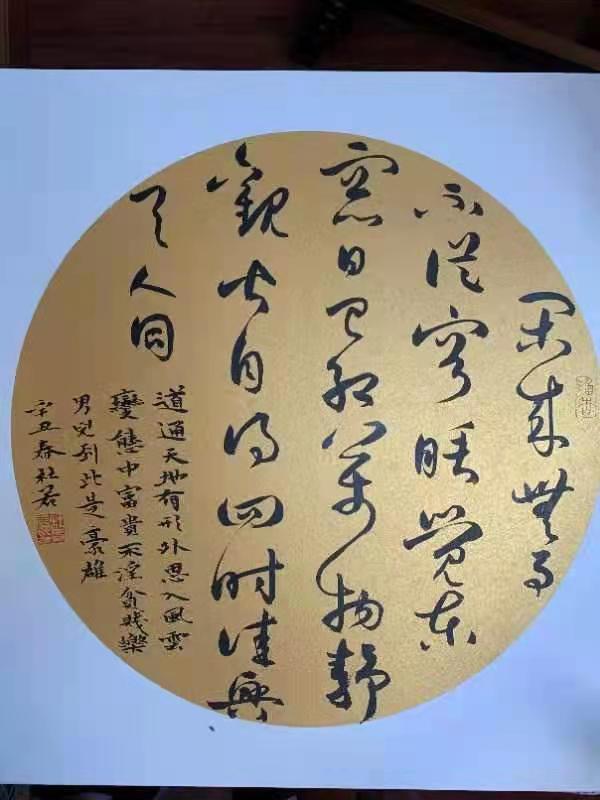 闲来無事
不從容睡觉东
窓日已红萬物静
觀皆自得四时佳興
与人同
道通天地有形外思入風雲
變態中富貴不淫貧賤樂
男兒到此是豪雄
辛丑春杜若